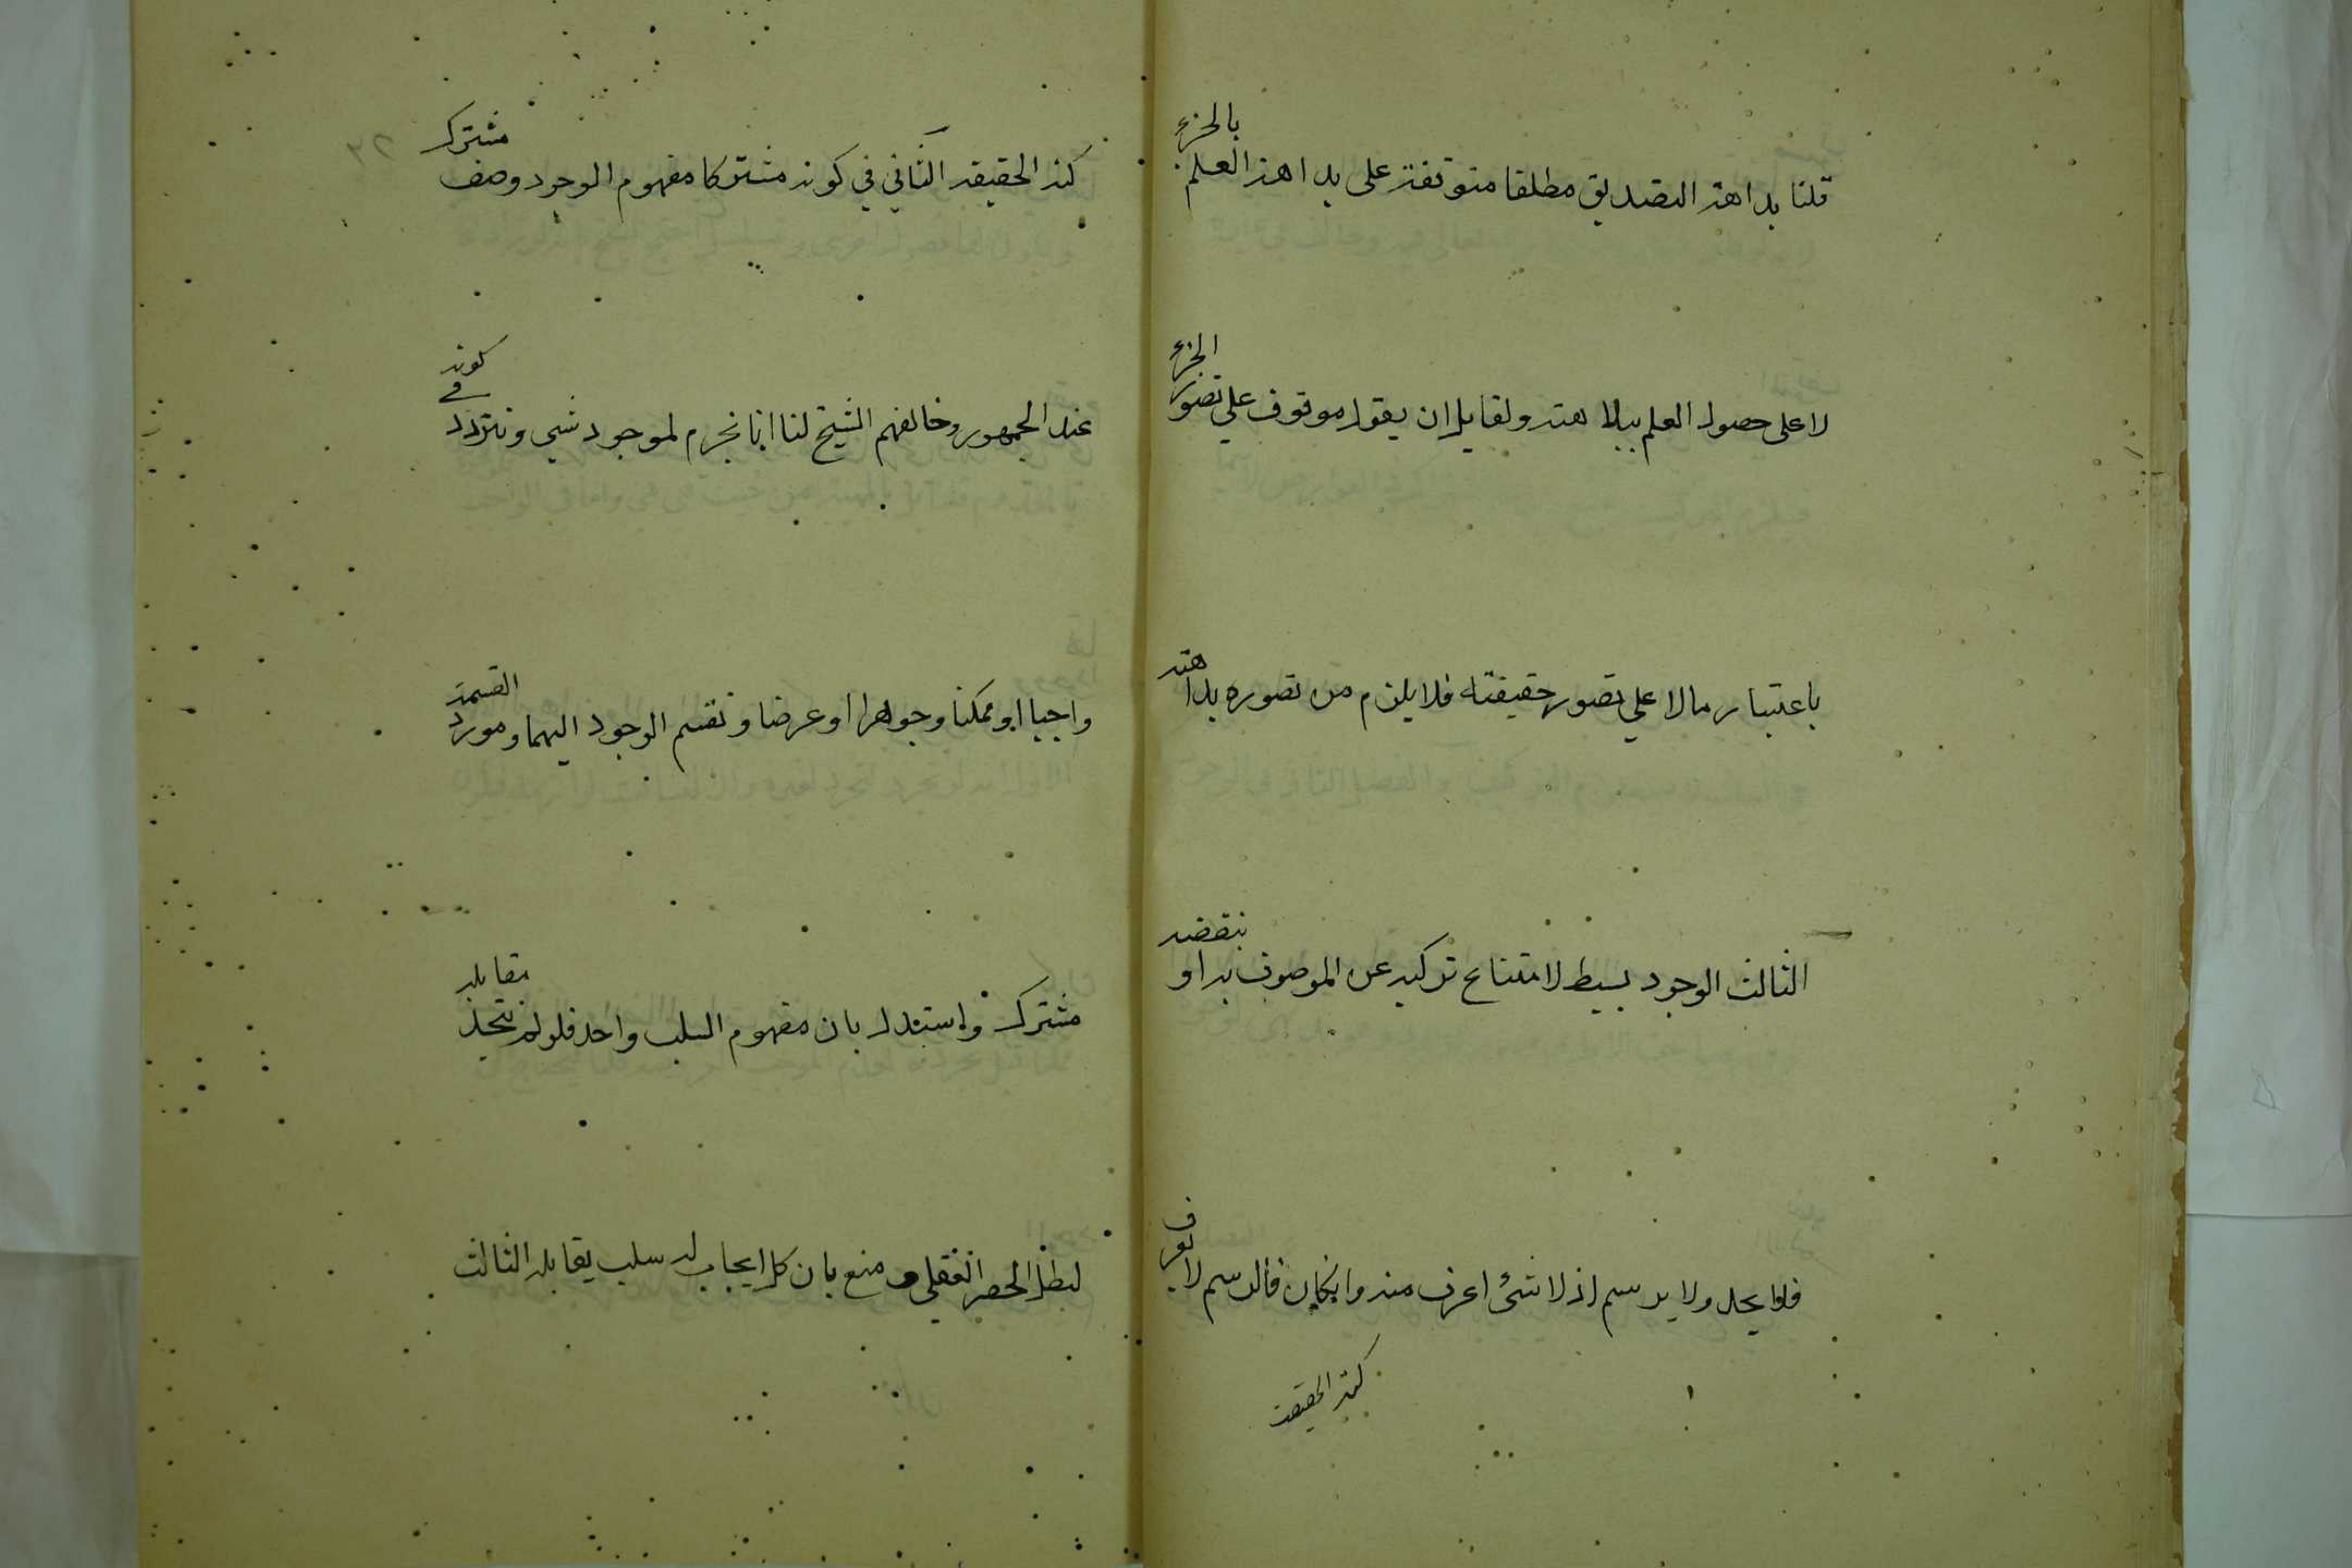 قلنا بداهة التصديق مطلقا متوقفة على بداهة العلم بالجزء
لا على حصول العلم ببداهته ولقايل ان يقول موقوف على تصور الجزء
باعتبار ما لا على تصور حقيقته فلا يلزم من تصوره بداهته
الثالث الوجود بسيط لامتناع تركبه عن الموصوف به او بنقيضه
فلا يحد ولا يرسم اذ لا شئ اعرف منه وان كان فالرسم لا يعرف
كنه الحقيقة
كنه الحقيقة الثاني في كونه مشتركا مفهوم الوجود وصف مشترك
عند الجمهور وخالفهم الشيخ لنا انا نجزم لموجود شي ونتردد في كونه
واجبا او ممكنا وجوهرا او عرضا ونقسم الوجود اليهما ومورد القسمة
مشترك واستدل بان مفهوم السلب واحد فلو لم يتحد مقابله
لبطل الحصر العقلي ومنع بان كل ايجاب له سلب يقابله الثالث